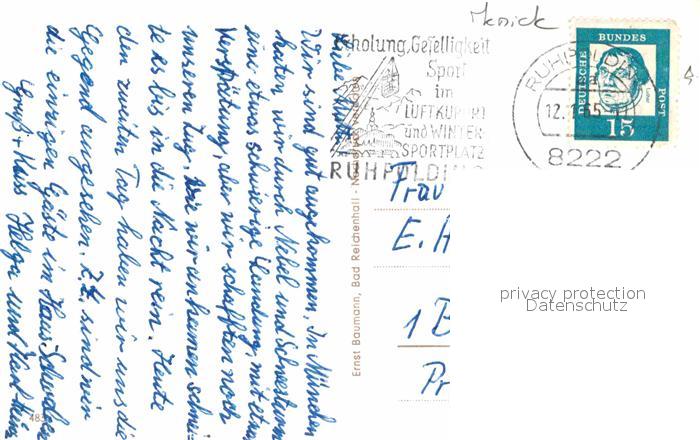 Wir sind gut angekommen. In München
hatten wir durch Nebel und Schneesturm
eine etwas schwierige Landung, mit etwas
Verspätung, aber wir schafften noch
unseren Zug. Wie wir ankamen schnei-
te es bis in die Nacht rein. Heute
den zweiten Tag haben wir uns die
Gegend angesehen. Z. Z. sind wir
die einzigen Gäste im Haus Schwaben
Gruß + Kuss Helga und
483
Ernst Baumann, Bad Reichenhall
Erholung, Geselligkeit
Sport
im
LUFTKURORT
und WINTER-
SPORTPLATZ
RUHPOLDING
RUHPOLDING
12.
65
8222
DEUTSCHE BUNDES POST
Luther
15
Frau
E. H
1 B
Pr
privacy protection
Datenschutz